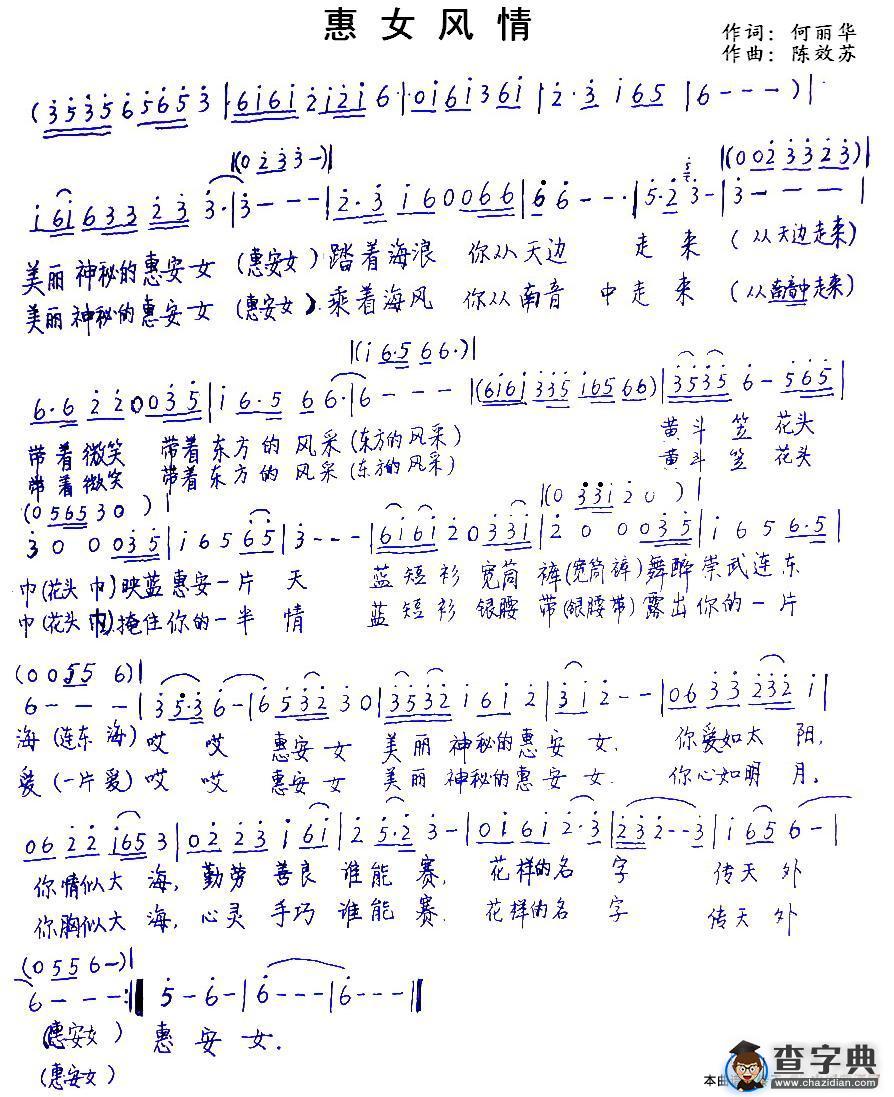 惠女风情
作词：何丽华
作曲：陈效苏
(3 5 3 5 6 5 6 5 3 | 6 i 6 i 2 i 2 i 6 · | 0 i 6 i 3 6 i | 2 · 3 i 6 5 | 6 - - - ) |
|(0 2 3 3 -)| |(0 0 2 3 3 2 3)|
i 6 i 6 3 3 2 3 3 · | 3 - - - | 2 · 3 i 6 0 0 6 6 | 6 6 - - · | 5 · 2 3 - | 3 - - - |
美丽神秘的惠安女(惠安女)踏着海浪 你从天边 走来 (从天边走来)
美丽神秘的惠安女(惠安女)乘着海风 你从南音 中走来 (从南音中走来)
|(i 6 · 5 6 6 ·)|
6 · 6 2 2 0 0 3 5 | i 6 · 5 6 6 · | 6 - - - |(6 i 6 i 3 3 5 i 6 5 6 6)| 3 5 3 5 6 - 5 6 5 |
带着微笑 带着东方的风采(东方的风采) 黄斗笠 花头
带着微笑 带着东方的风采(东方的风采) 黄斗笠 花头
(0 5 6 5 3 0 )| |(0 3 3 i 2 0 )|
3 0 0 0 3 5 | i 6 5 6 5 | 3 - - - | 6 i 6 i 2 0 3 3 i | 2 0 0 0 3 5 | i 6 5 6 · 5 |
巾(花头巾)映蓝惠安一片天 蓝短衫 宽筒裤(宽筒裤)舞醉崇武连东
巾(花头巾)掩住你的一半情 蓝短衫 银腰带(银腰带)露出你的一片
(0 0 5 5 6)|
6 - - - | 3 5 · 3 6 - | 6 5 3 2 3 0 | 3 5 3 2 i 6 i 2 | 3 i 2 - - | 0 6 3 3 2 3 2 i |
海(连东海)哎 哎 惠安女 美丽神秘的惠安女. 你爱如太阳,
爱(一片爱)哎 哎 惠安女 美丽神秘的惠安女. 你心如明月。
0 6 2 2 i 6 5 3 | 0 2 2 3 i 6 i | 2 5 · 2 3 - | 0 i 6 i 2 · 3 | 2 3 2 - - 3 | i 6 5 6 - |
你情似大海,勤劳善良谁能赛, 花样的名字 传天外
你胸似大海,心灵手巧谁能赛. 花样的名字 传天外
(0 5 5 6 -)|
6 - - - :‖ 5 - 6 - | 6 - - - | 6 - - - ‖
(惠安女) 惠安女.
(惠安女)
本曲
查字典
www.chazidian.com